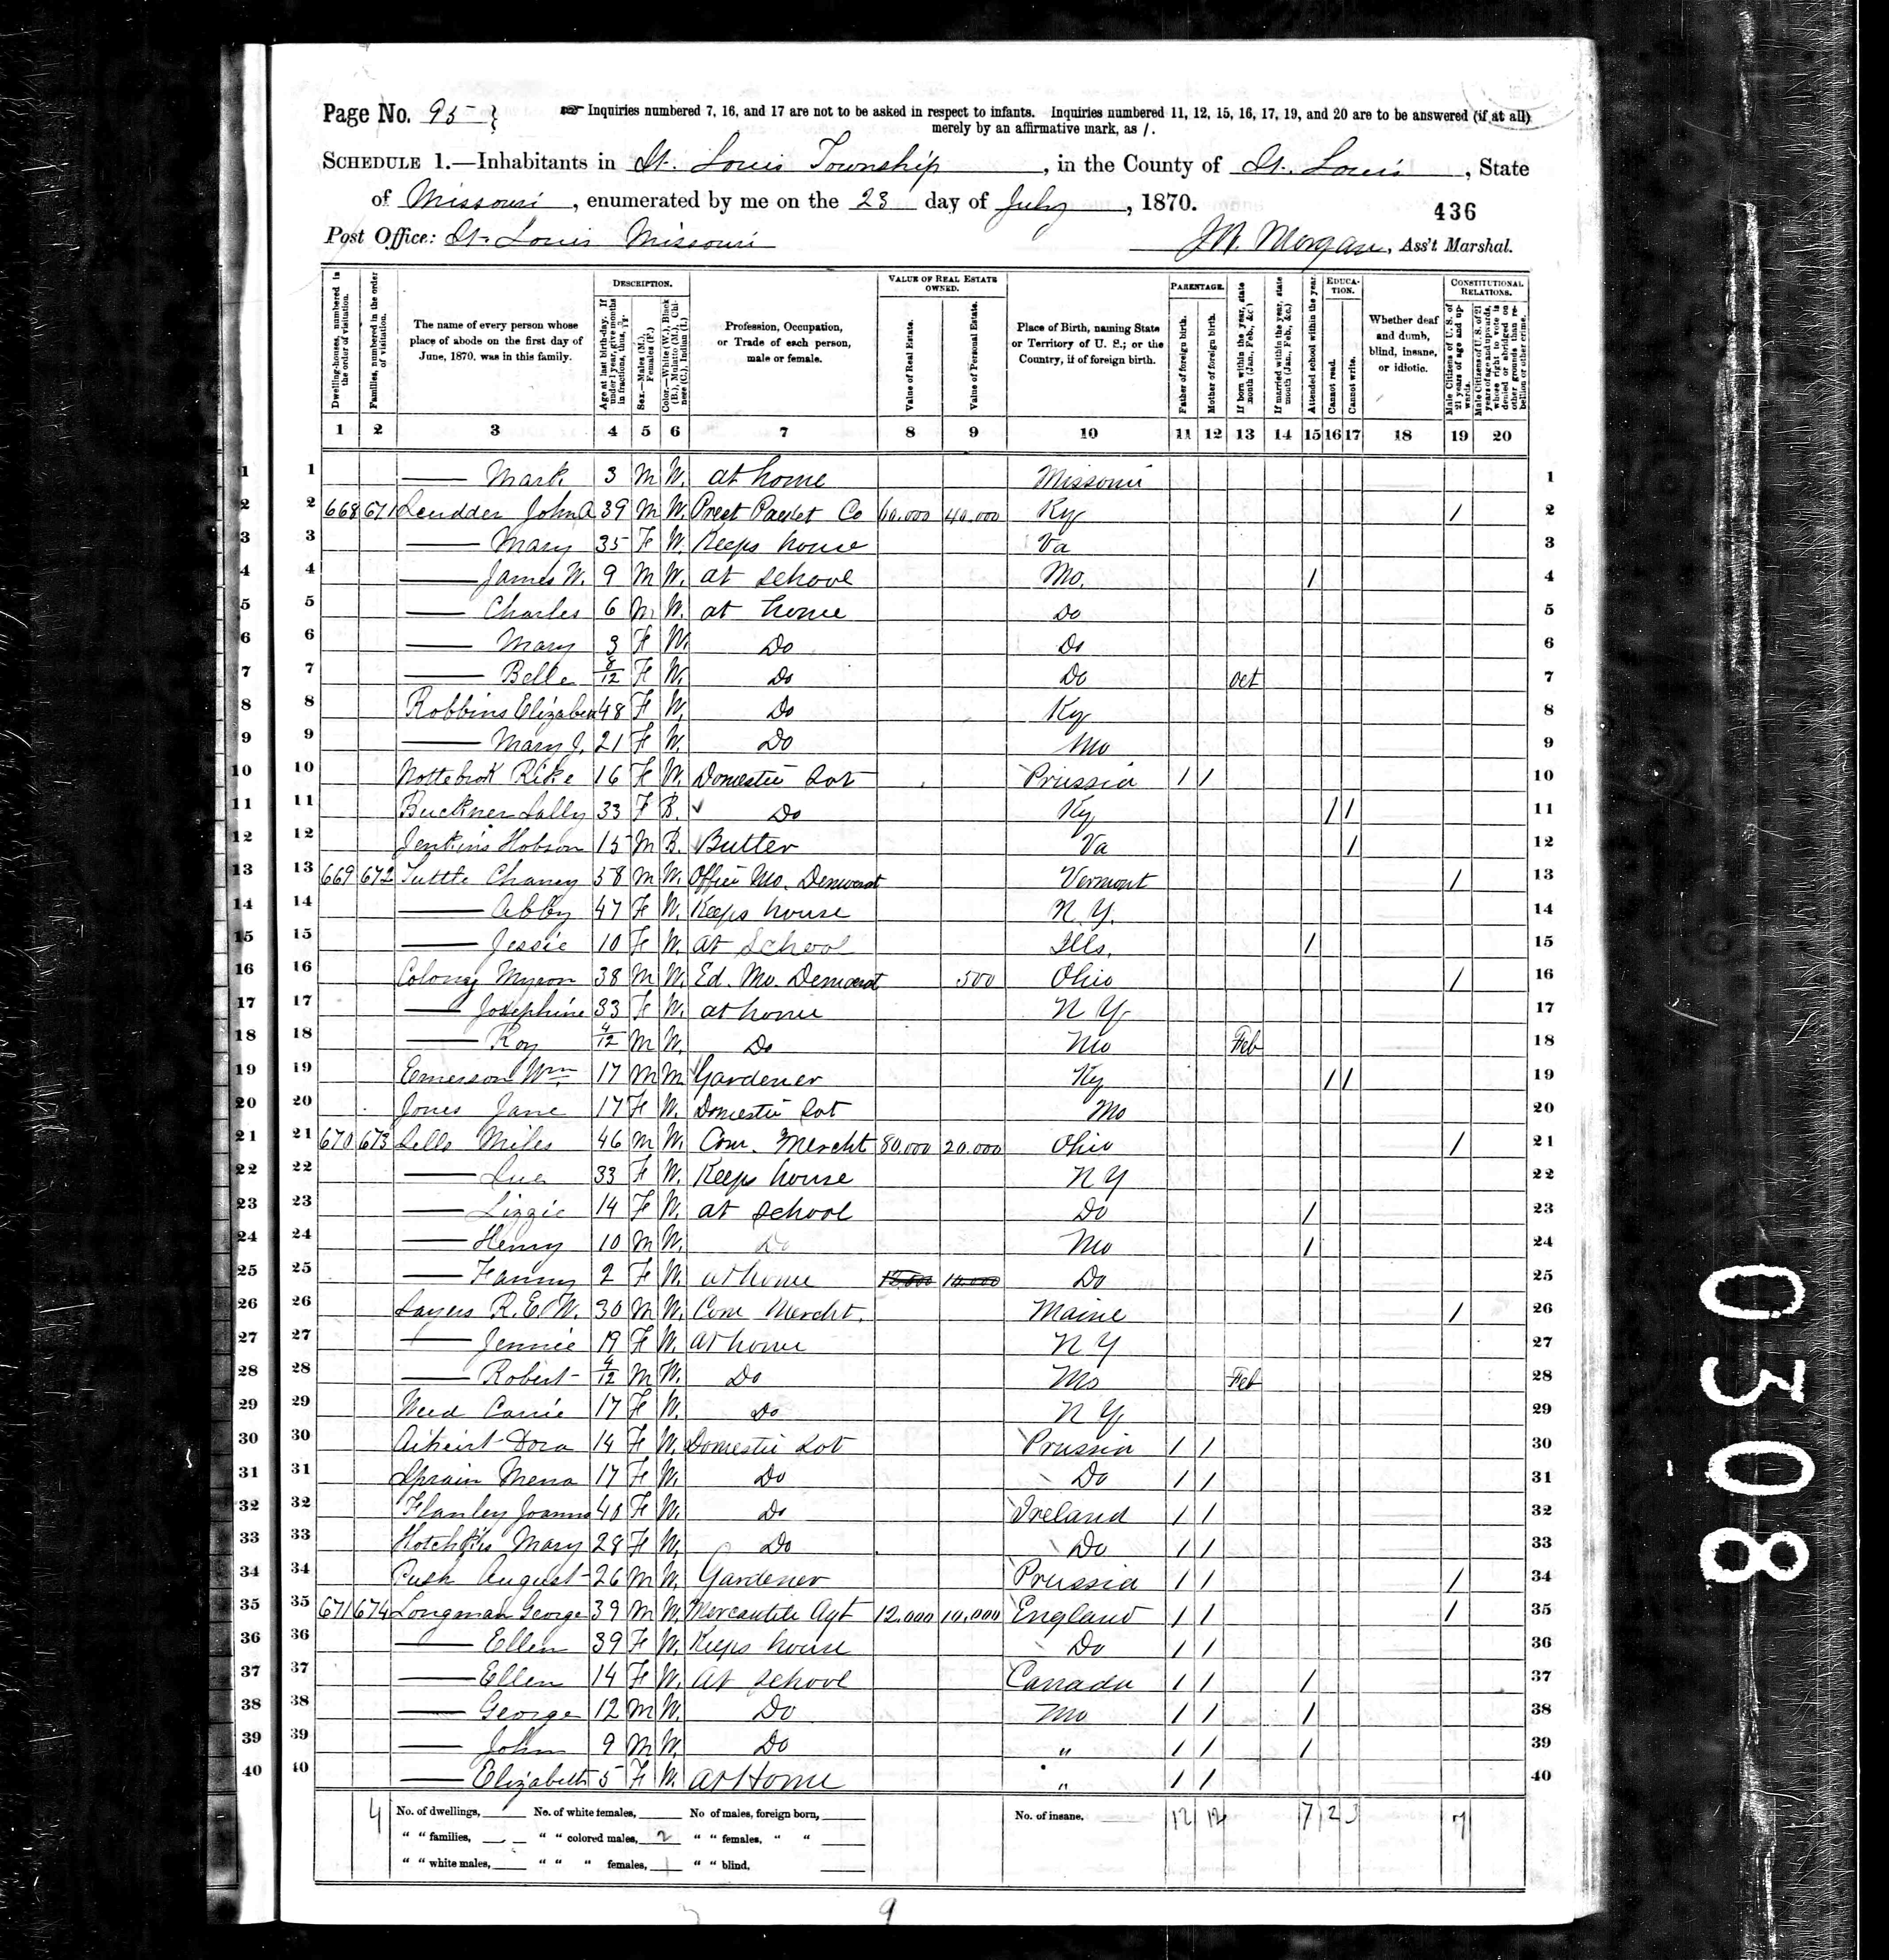 Page No. 95
Inquiries numbered 7, 16, and 17 are not to be asked in respect to infants. Inquiries numbered 11, 12, 15, 16, 17, 19, and 20 are to be answered (if at all)
merely by an affirmative mark, as /.
SCHEDULE 1.—Inhabitants in St. Louis Township, in the County of St. Louis, State
of Missouri, enumerated by me on the 23 day of July, 1870.
436
Post Office: St. Louis Missouri
J.W. Morgan, Ass't Marshal.
Dwelling-houses, numbered in the order of visitation.
Families, numbered in the order of visitation.
The name of every person whose place of abode on the first day of June, 1870, was in this family.
DESCRIPTION.
Age at last birth-day. If under 1 year, give months in fractions, thus, 3/12.
Sex.—Males (M.), Females (F.)
Color.—White (W.), Black (B.), Mulatto (M.), Chinese (C.), Indian (I.)
Profession, Occupation, or Trade of each person, male or female.
VALUE OF REAL ESTATE OWNED.
Value of Real Estate.
Value of Personal Estate.
Place of Birth, naming State or Territory of U. S.; or the Country, if of foreign birth.
PARENTAGE.
Father of foreign birth.
Mother of foreign birth.
If born within the year, state month (Jan., Feb., &c.)
If married within the year, state month (Jan., Feb., &c.)
Attended school within the year.
EDUCATION.
Cannot read.
Cannot write.
Whether deaf and dumb, blind, insane, or idiotic.
CONSTITUTIONAL RELATIONS.
Male Citizens of U. S. of 21 years of age and upwards.
Male Citizens of U. S. of 21 years of age and upwards, whose right to vote is denied or abridged on other grounds than rebellion or other crime.
1 2 3 4 5 6 7 8 9 10 11 12 13 14 15 16 17 18 19 20
1 1 —— Mark 3 M W. at home Missouri 1
2 2 668 671 Scudder John A 39 M W. Prest Packet Co 60.000 40.000 Ky / 2
3 3 —— Mary 35 F W. Keeps house Va 3
4 4 —— James W. 9 M W. at school Mo. / 4
5 5 —— Charles 6 M W. at home Do 5
6 6 —— Mary 3 F W. Do Do 6
7 7 —— Belle 8/12 F W. Do Do Oct 7
8 8 Robbins Elizabeth 48 F W. Do Ky 8
9 9 —— Mary J. 21 F W. Do Mo 9
10 10 Nottebrok Rike 16 F W. Domestic Svt Prussia / / 10
11 11 Buckner Sally 33 F B. Do Ky / / 11
12 12 Jenkins Hobson 15 M B. Butler Va / 12
13 13 669 672 Tuttle Chancy 58 M W. Office Mo. Democrat Vermont / 13
14 14 —— Abby 47 F W. Keeps house N.Y. 14
15 15 —— Jessie 10 F W. at School Ills. / 15
16 16 Colony Myron 38 M W. Ed. Mo. Democrat 500 Ohio / 16
17 17 —— Josephine 33 F W. at home N Y 17
18 18 —— Roy 4/12 M W. Do Mo Feb 18
19 19 Emerson Wm 17 M M Gardener Ky / / 19
20 20 Jones Jane 17 F W. Domestic Svt Mo 20
21 21 670 673 Sells Miles 46 M W. Com. Mercht 80.000 20.000 Ohio / 21
22 22 —— Sue 33 F W. Keeps house N Y 22
23 23 —— Lizzie 14 F W. at school Do / 23
24 24 —— Henry 10 M W. Do Mo / 24
25 25 —— Fanny 2 F W. at home Do 25
26 26 Sayers R.E.W. 30 M W. Com Mercht. Maine / 26
27 27 —— Jennie 19 F W. at home N Y 27
28 28 —— Robert 4/12 M W. Do Mo Feb 28
29 29 Weed Carrie 17 F W. Do N Y. 29
30 30 Dora 14 F W. Domestic Svt Prussia / / 30
31 31 Sprain Mena 17 F W. Do Do / / 31
32 32 Hanley Joanna 40 F W. Do Ireland / / 32
33 33 Hotchkis Mary 28 F W. Do Do / / 33
34 34 August 26 M W. Gardener Prussia / / / 34
35 35 671 674 Longman George 39 M W. Mercantile Agt 12.000 10.000 England / / / 35
36 36 —— Ellen 39 F W. Keeps house Do / / 36
37 37 —— Ellen 14 F W. at school Canada / / / 37
38 38 —— George 12 M W. Do Mo / / / 38
39 39 —— John 9 M W. Do " / / / 39
40 40 —— Elizabeth 5 F W. at Home " / / 40
4 No. of dwellings, No. of white females, No of males, foreign born, No. of insane, 12 12 7 2 3 7
" " families, " " colored males, 2 " " females, " "
" " white males, " " " females, 1 " " blind,
9
0308